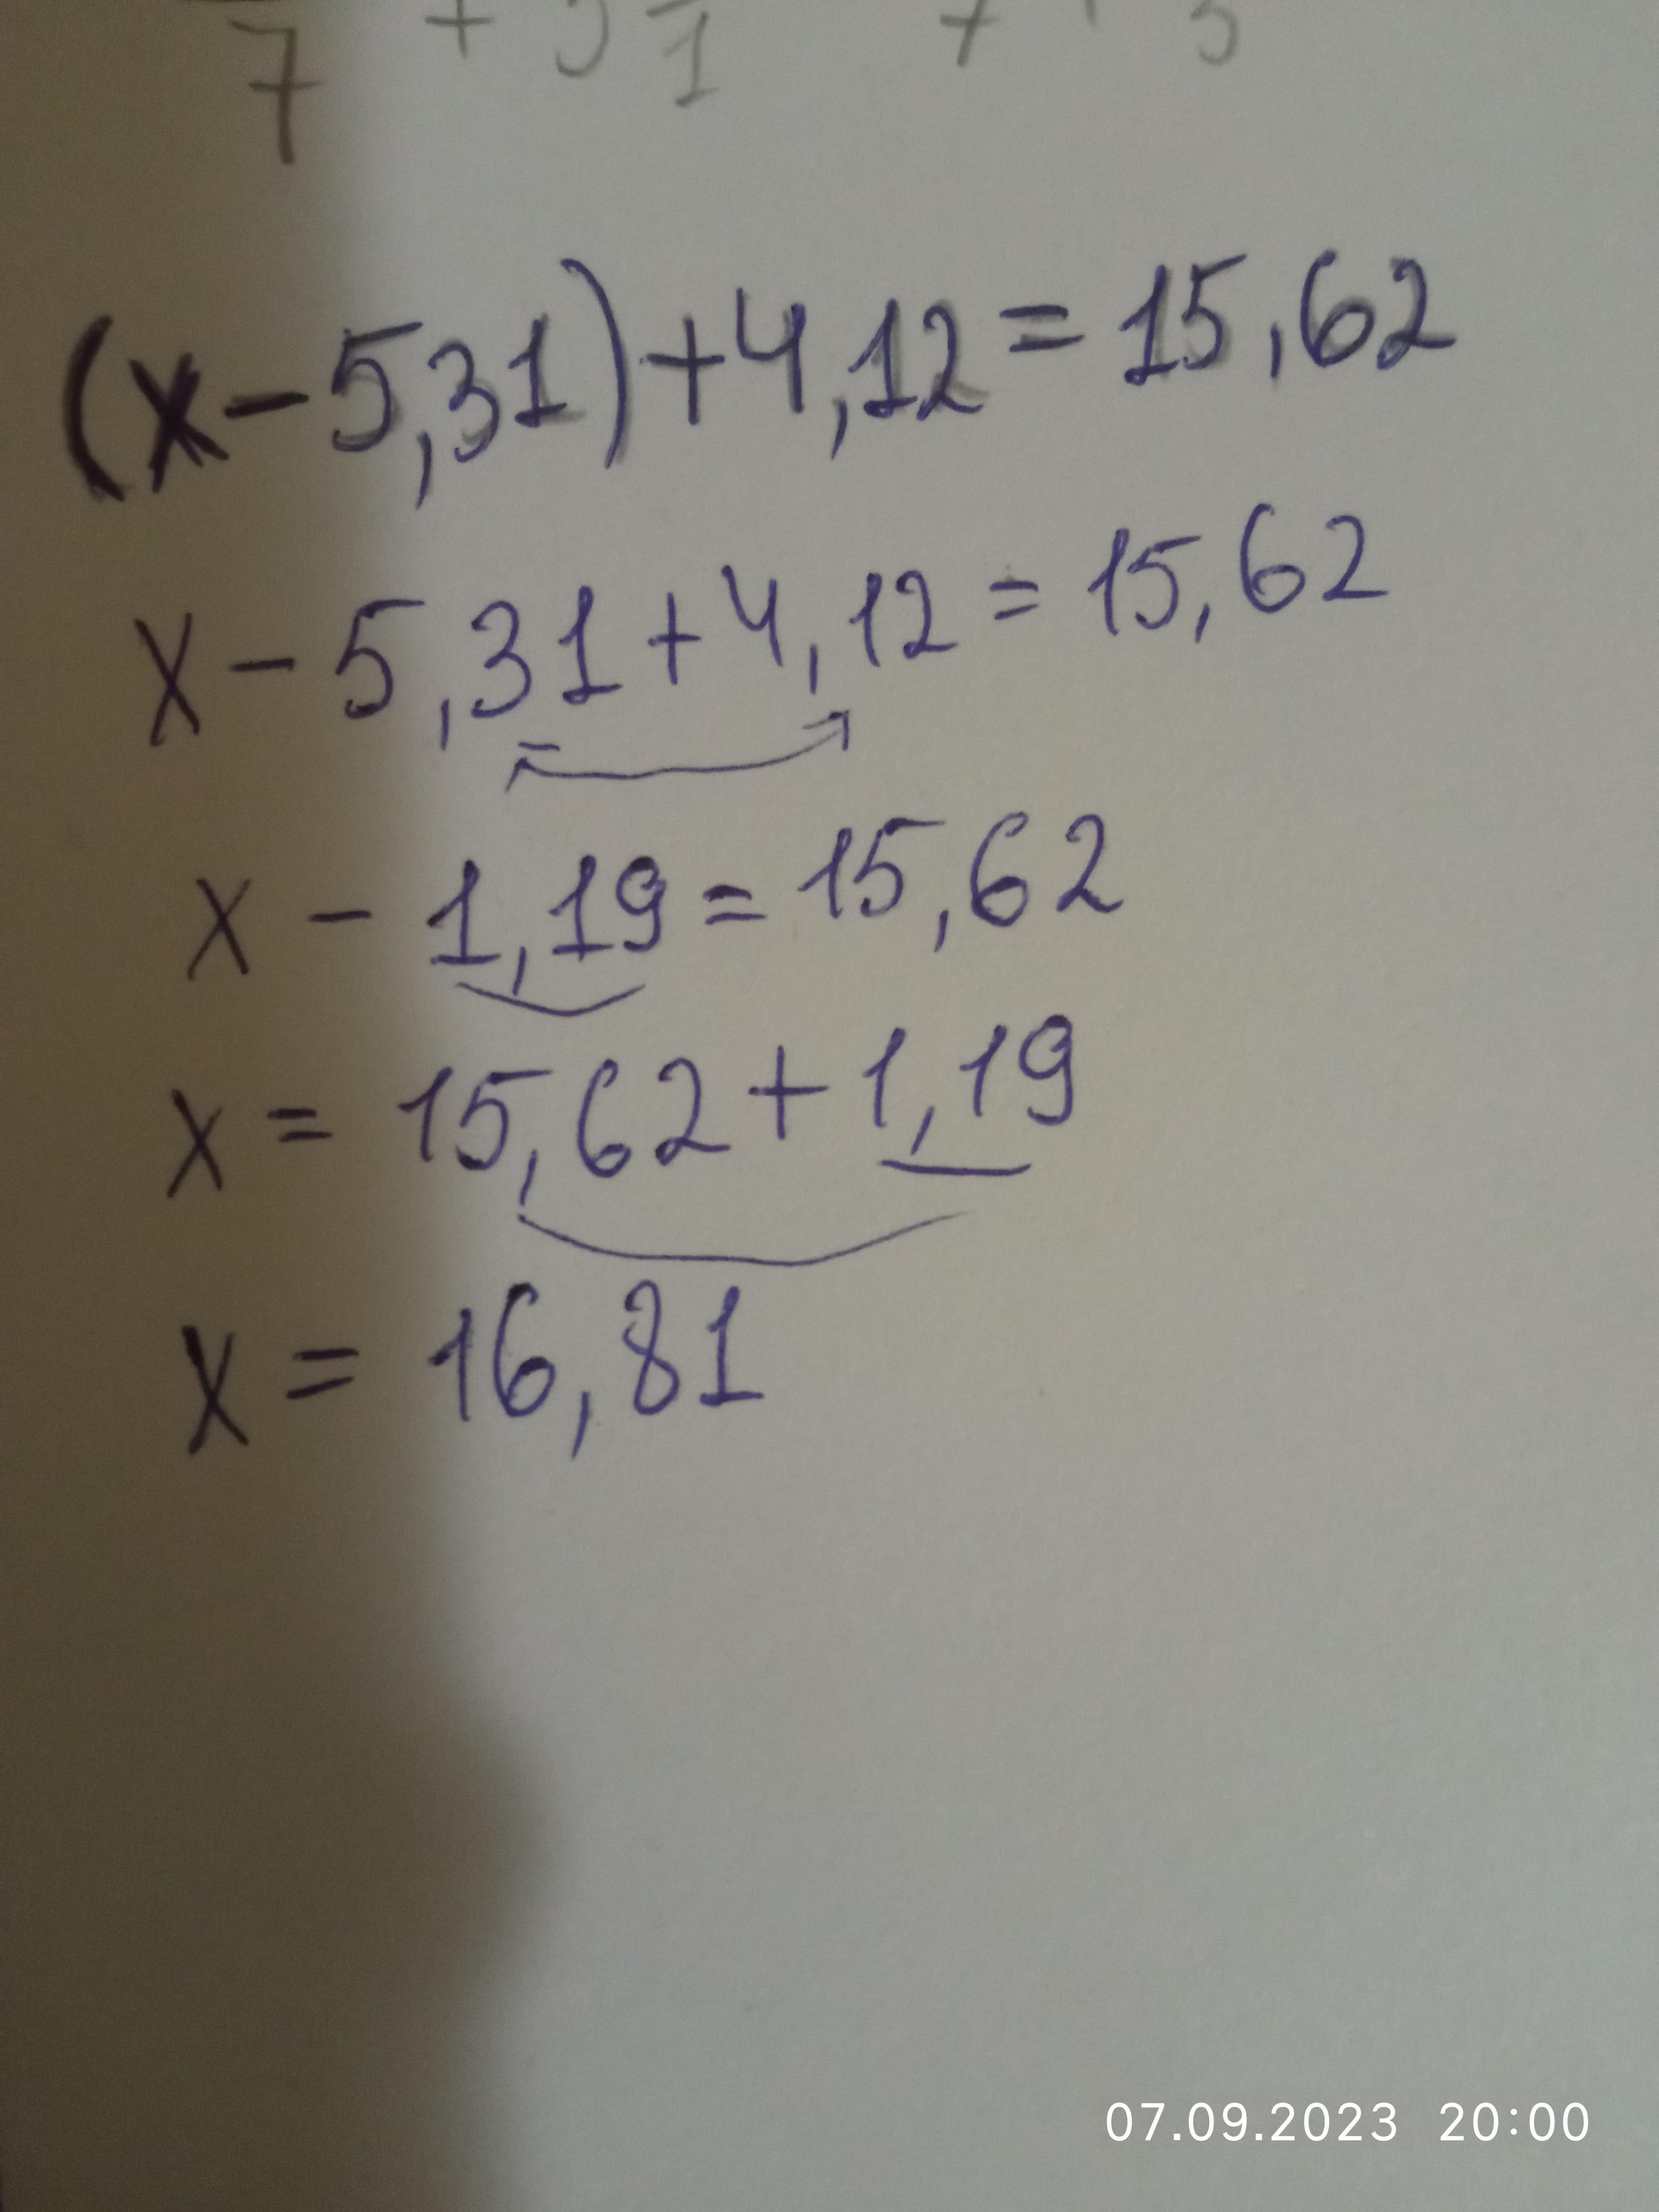 7 + 5 1 7 + 5
(x-5,31)+4,12=15,62
x-5,31+4,12=15,62
x-1,19=15,62
x=15,62+1,19
x=16,81
07.09.2023 20:00